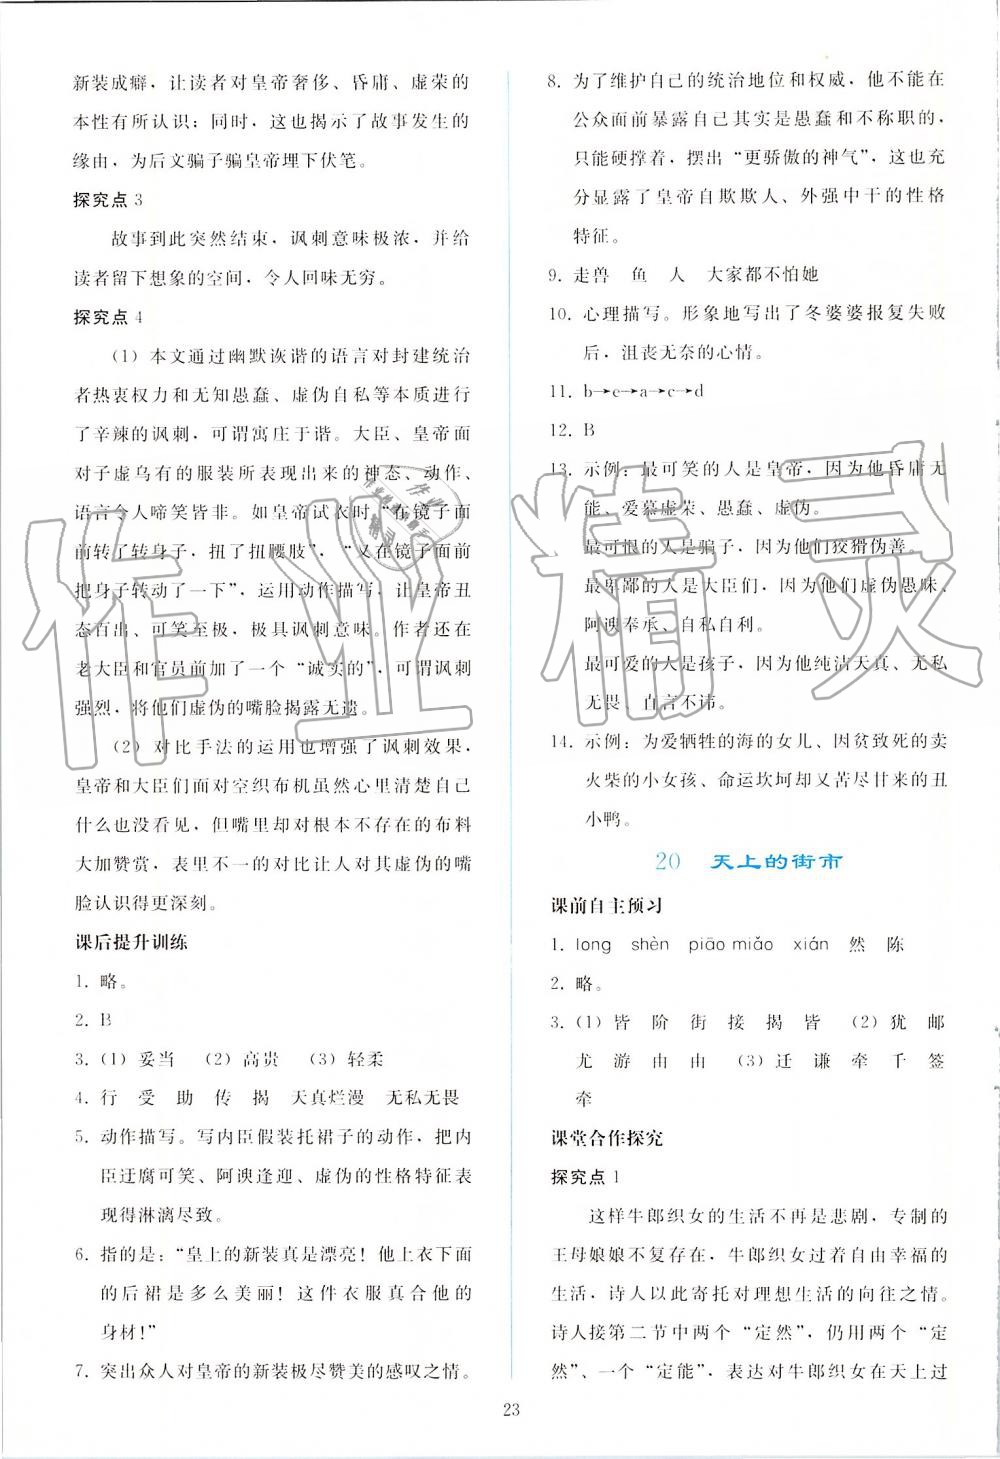 新装成癖，让读者对皇帝奢侈、昏庸、虚荣的
本性有所认识；同时，这也揭示了故事发生的
缘由，为后文骗子骗皇帝埋下伏笔。
探究点3
故事到此突然结束，讽刺意味极浓，并给
读者留下想象的空间，令人回味无穷。
探究点4
（1）本文通过幽默诙谐的语言对封建统治
者热衷权力和无知愚蠢、虚伪自私等本质进行
了辛辣的讽刺，可谓寓庄于谐。大臣、皇帝面
对子虚乌有的服装所表现出来的神态、动作、
语言令人啼笑皆非。如皇帝试衣时“在镜子面
前转了转身子，扭了扭腰肢”，“又在镜子面前
把身子转动了一下”，运用动作描写，让皇帝丑
态百出、可笑至极，极具讽刺意味。作者还在
老大臣和官员前加了一个“诚实的”，可谓讽刺
强烈，将他们虚伪的嘴脸揭露无遗。
（2）对比手法的运用也增强了讽刺效果，
皇帝和大臣们面对空织布机虽然心里清楚自己
什么也没看见，但嘴里却对根本不存在的布料
大加赞赏，表里不一的对比让人对其虚伪的嘴
脸认识得更深刻。
课后提升训练
1. 略。
2. B
3. （1）妥当 （2）高贵 （3）轻柔
4. 行 受 助 传 揭 天真烂漫 无私无畏
5. 动作描写。写内臣假装托裙子的动作，把内
臣迂腐可笑、阿谀逢迎、虚伪的性格特征表
现得淋漓尽致。
6. 指的是：“皇上的新装真是漂亮！他上衣下面
的后裙是多么美丽！这件衣服真合他的
身材！”
7. 突出众人对皇帝的新装极尽赞美的感叹之情。
8. 为了维护自己的统治地位和权威，他不能在
公众面前暴露自己其实是愚蠢和不称职的，
只能硬撑着，摆出“更骄傲的神气”，这也充
分显露了皇帝自欺欺人、外强中干的性格
特征。
9. 走兽 鱼 人 大家都不怕她
10. 心理描写。形象地写出了冬婆婆报复失败
后，沮丧无奈的心情。
11. b→e→a→c→d
12. B
13. 示例：最可笑的人是皇帝，因为他昏庸无
能、爱慕虚荣、愚蠢、虚伪。
最可恨的人是骗子，因为他们狡猾伪善。
最卑鄙的人是大臣们，因为他们虚伪愚昧、
阿谀奉承、自私自利。
最可爱的人是孩子，因为他纯洁天真、无私
无畏、直言不讳。
14. 示例：为爱牺牲的海的女儿、因贫致死的卖
火柴的小女孩、命运坎坷却又苦尽甘来的丑
小鸭。
20 天上的街市
课前自主预习
1. long shèn piāo miǎo xián 然 陈
2. 略。
3. （1）皆 阶 街 接 揭 皆 （2）犹 邮
尤 游 由 由 （3）迁 谦 牵 千 签
牵
课堂合作探究
探究点1
这样牛郎织女的生活不再是悲剧，专制的
王母娘娘不复存在，牛郎织女过着自由幸福的
生活，诗人以此寄托对理想生活的向往之情。
诗人接第二节中两个“定然”，仍用两个“定
然”、一个“定能”，表达对牛郎织女在天上过
23
作业精灵